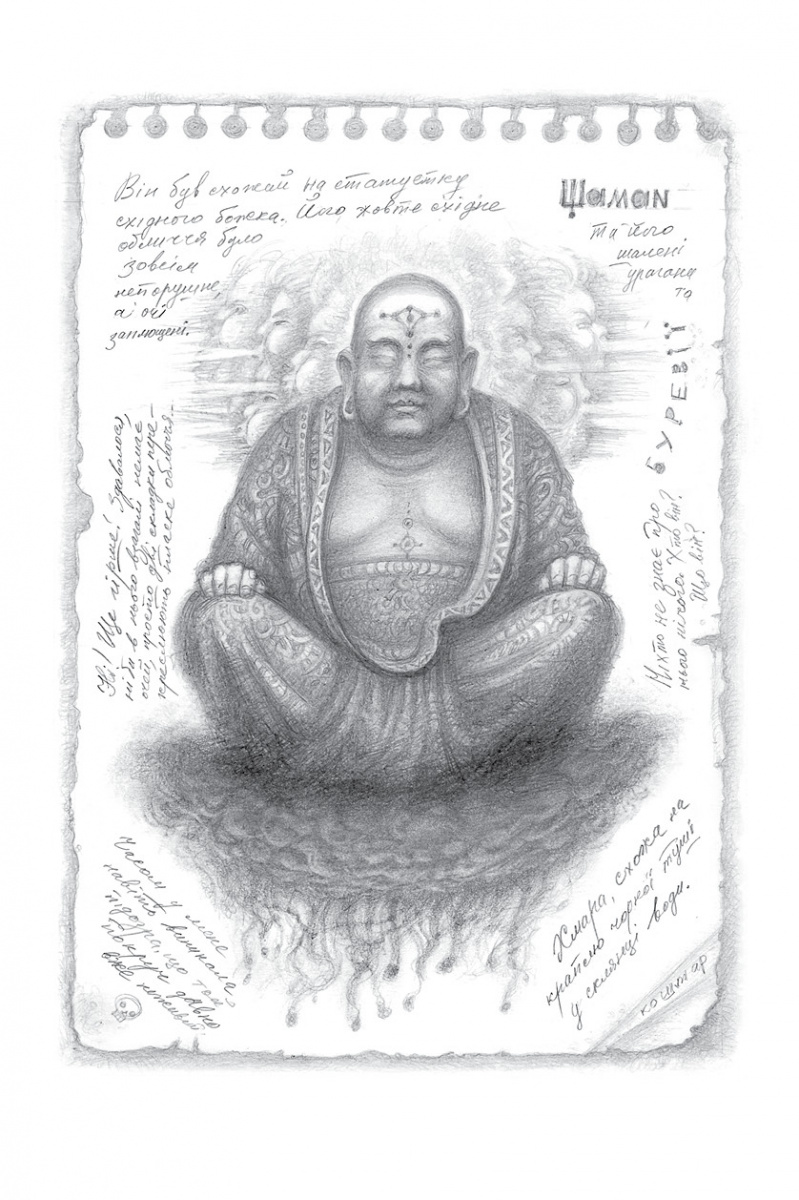 Він був схожий на статуетку
східного божка. Його жовте східне
обличчя було
зовсім
непорушне,
а очі
заплющені.
Шаман
та його
шалені
урагани
та
буревії
Ні! Ще гірше! Здавалося,
ніби в нього взагалі немає
очей, просто дві складки пере-
креслюють пласке обличчя...
Ніхто не знає про
нього нічого. Хто він?
Що він?
Часом у мене
навіть виникала
підозра, що тей
покруч давно
вже неживий.
Хмара, схожа на
краплю чорної туші
у склянці води.
кошмар